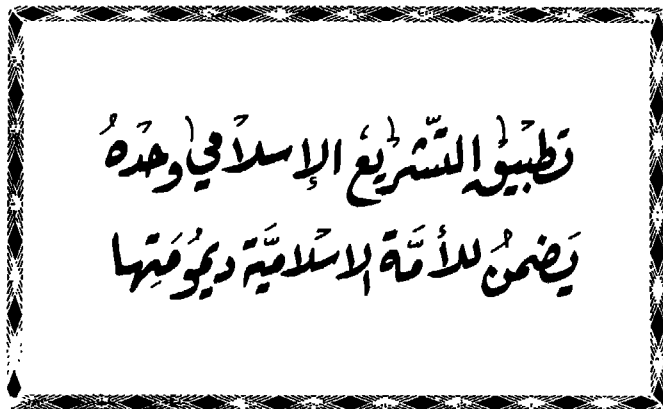 تطبيق التّشريع الإسلامي وحده
يَضمنُ للأمَّة الاسلاميَّة ديمُومَتِها